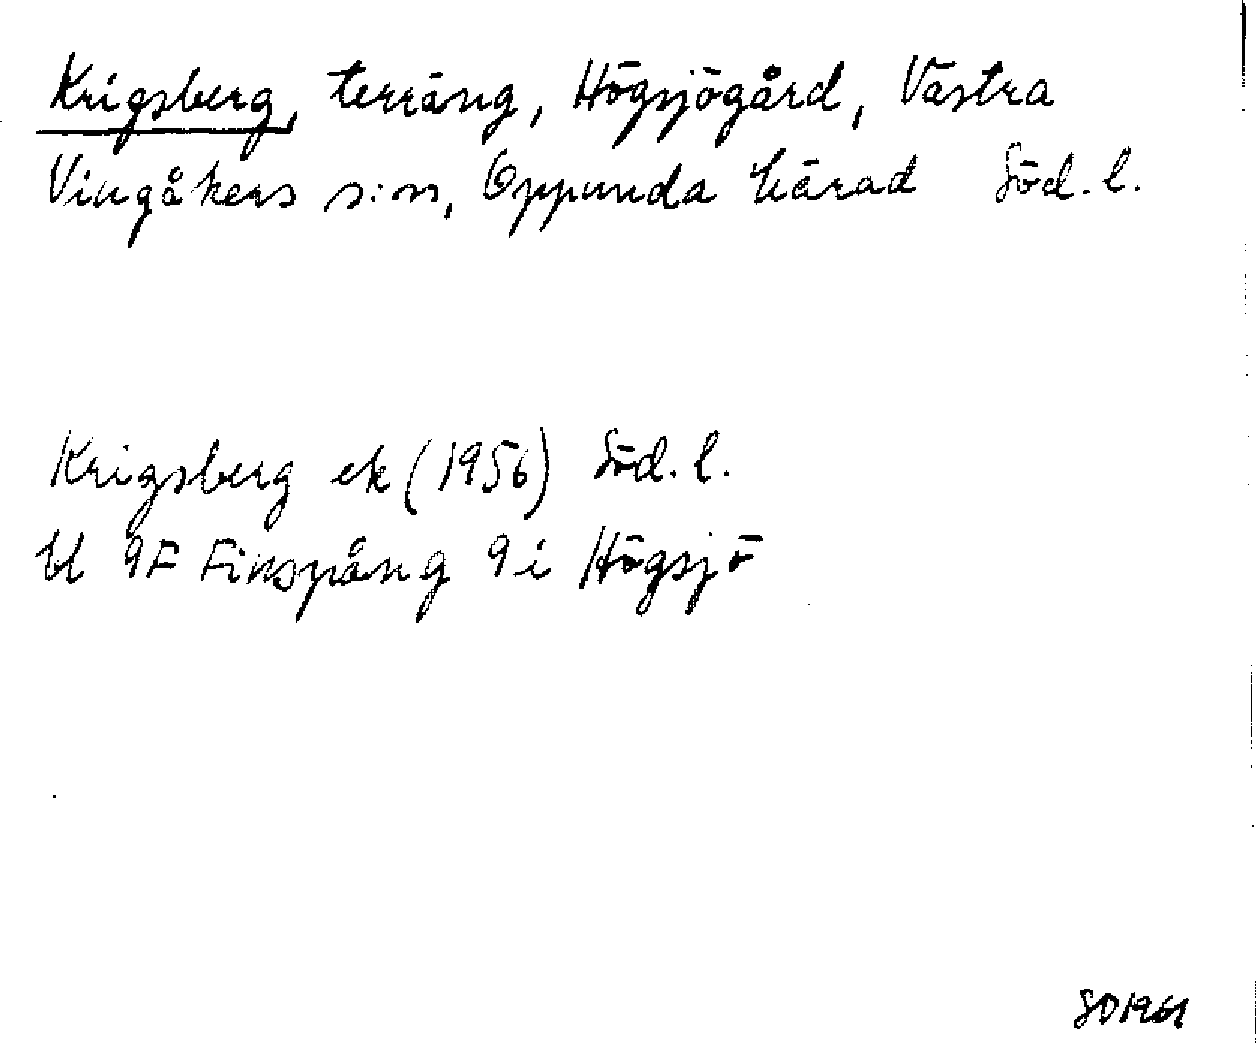 Krigsberg, terräng, Högsjögård, Västra
Vingåkers s:n, Oppunda härad Söd. l.
Krigsberg ek (1956) Söd. l.
bl 9F Finspång 9 i Högsjö